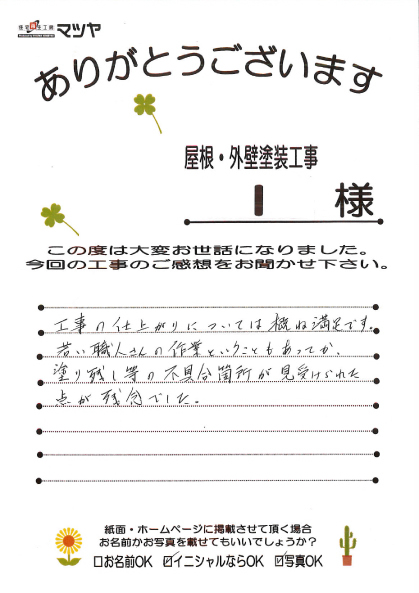 住宅再生工房 マツヤ
ありがとうございます
屋根・外壁塗装工事
I 様
この度は大変お世話になりました。
今回の工事のご感想をお聞かせ下さい。
工事の仕上がりについては概ね満足です。
若い職人さんの作業ということもあってか、
塗り残し等の不具合箇所が見受けられた
点が残念でした。
紙面・ホームページに掲載させて頂く場合
お名前かお写真を載せてもいいでしょうか?
□お名前OK ☑イニシャルならOK ☑写真OK